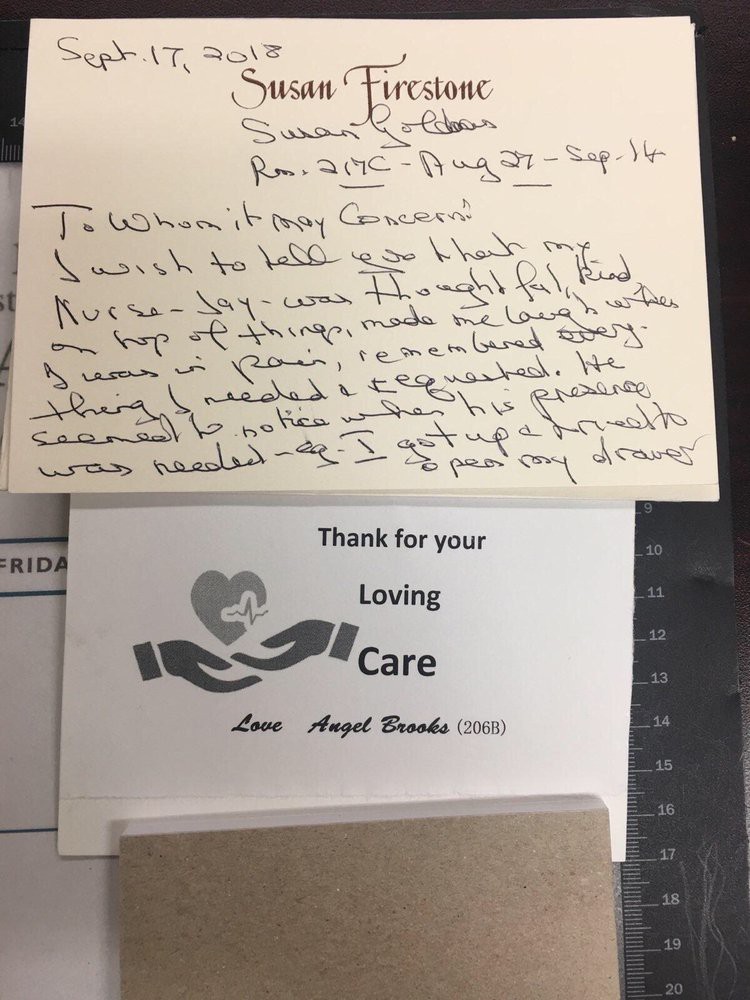 Sept. 17, 2018
Susan Firestone
Susan
Rm. 217C - Aug 27 - Sep. 14
To Whom it may Concern:
I wish to tell you that my
Nurse - Jay - was thoughtful, kind,
on top of things, made me laugh when
I was in pain, remembered every-
thing I needed & requested. He
seemed to notice when his presence
was needed - eg. I got up & tried to
open my drawer
FRIDA
Thank for your
Loving
Care
Love Angel Brooks (206B)
14
9
10
11
12
13
14
15
16
17
18
19
20